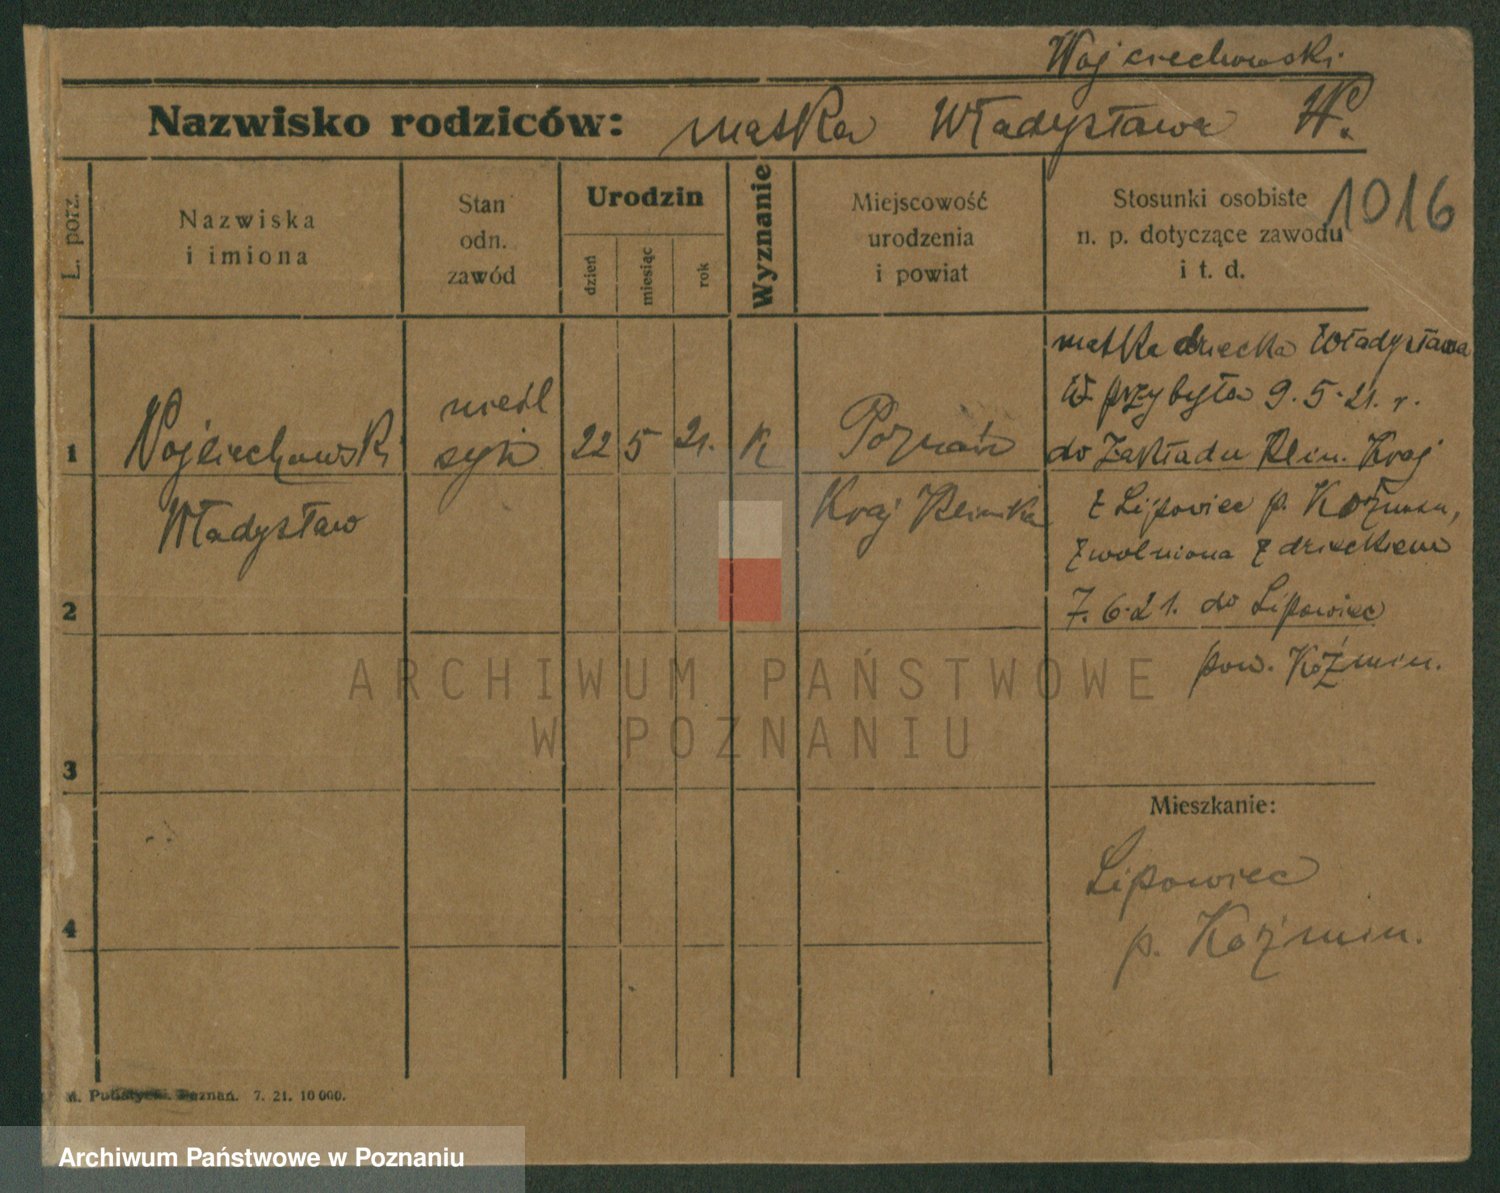 Wojciechowski
Nazwisko rodziców: matka Władysława W.
1016
L. porz.
Nazwiska
i imiona
Stan
odn.
zawód
Urodzin
dzień
miesiąc
rok
Wyznanie
Miejscowość
urodzenia
i powiat
Stosunki osobiste
n. p. dotyczące zawodu
i t. d.
1
Wojciechowski
Władysław
nieśl
syn
22
5
21.
K
Poznań
Kraj Klinika
matka dziecka Władysława
W. przybyła 9.5.21. r.
do Zakładu Klin. Kraj
z Lipowiec p. Koźmin,
zwolniona z dzieckiem
7.6.21. do Lipowiec
pow. Koźmin.
2
3
4
Mieszkanie:
Lipowiec
p. Koźmin.
Poznań. 7. 21. 10 000.
ARCHIWUM PAŃSTWOWE
W POZNANIU
Archiwum Państwowe w Poznaniu